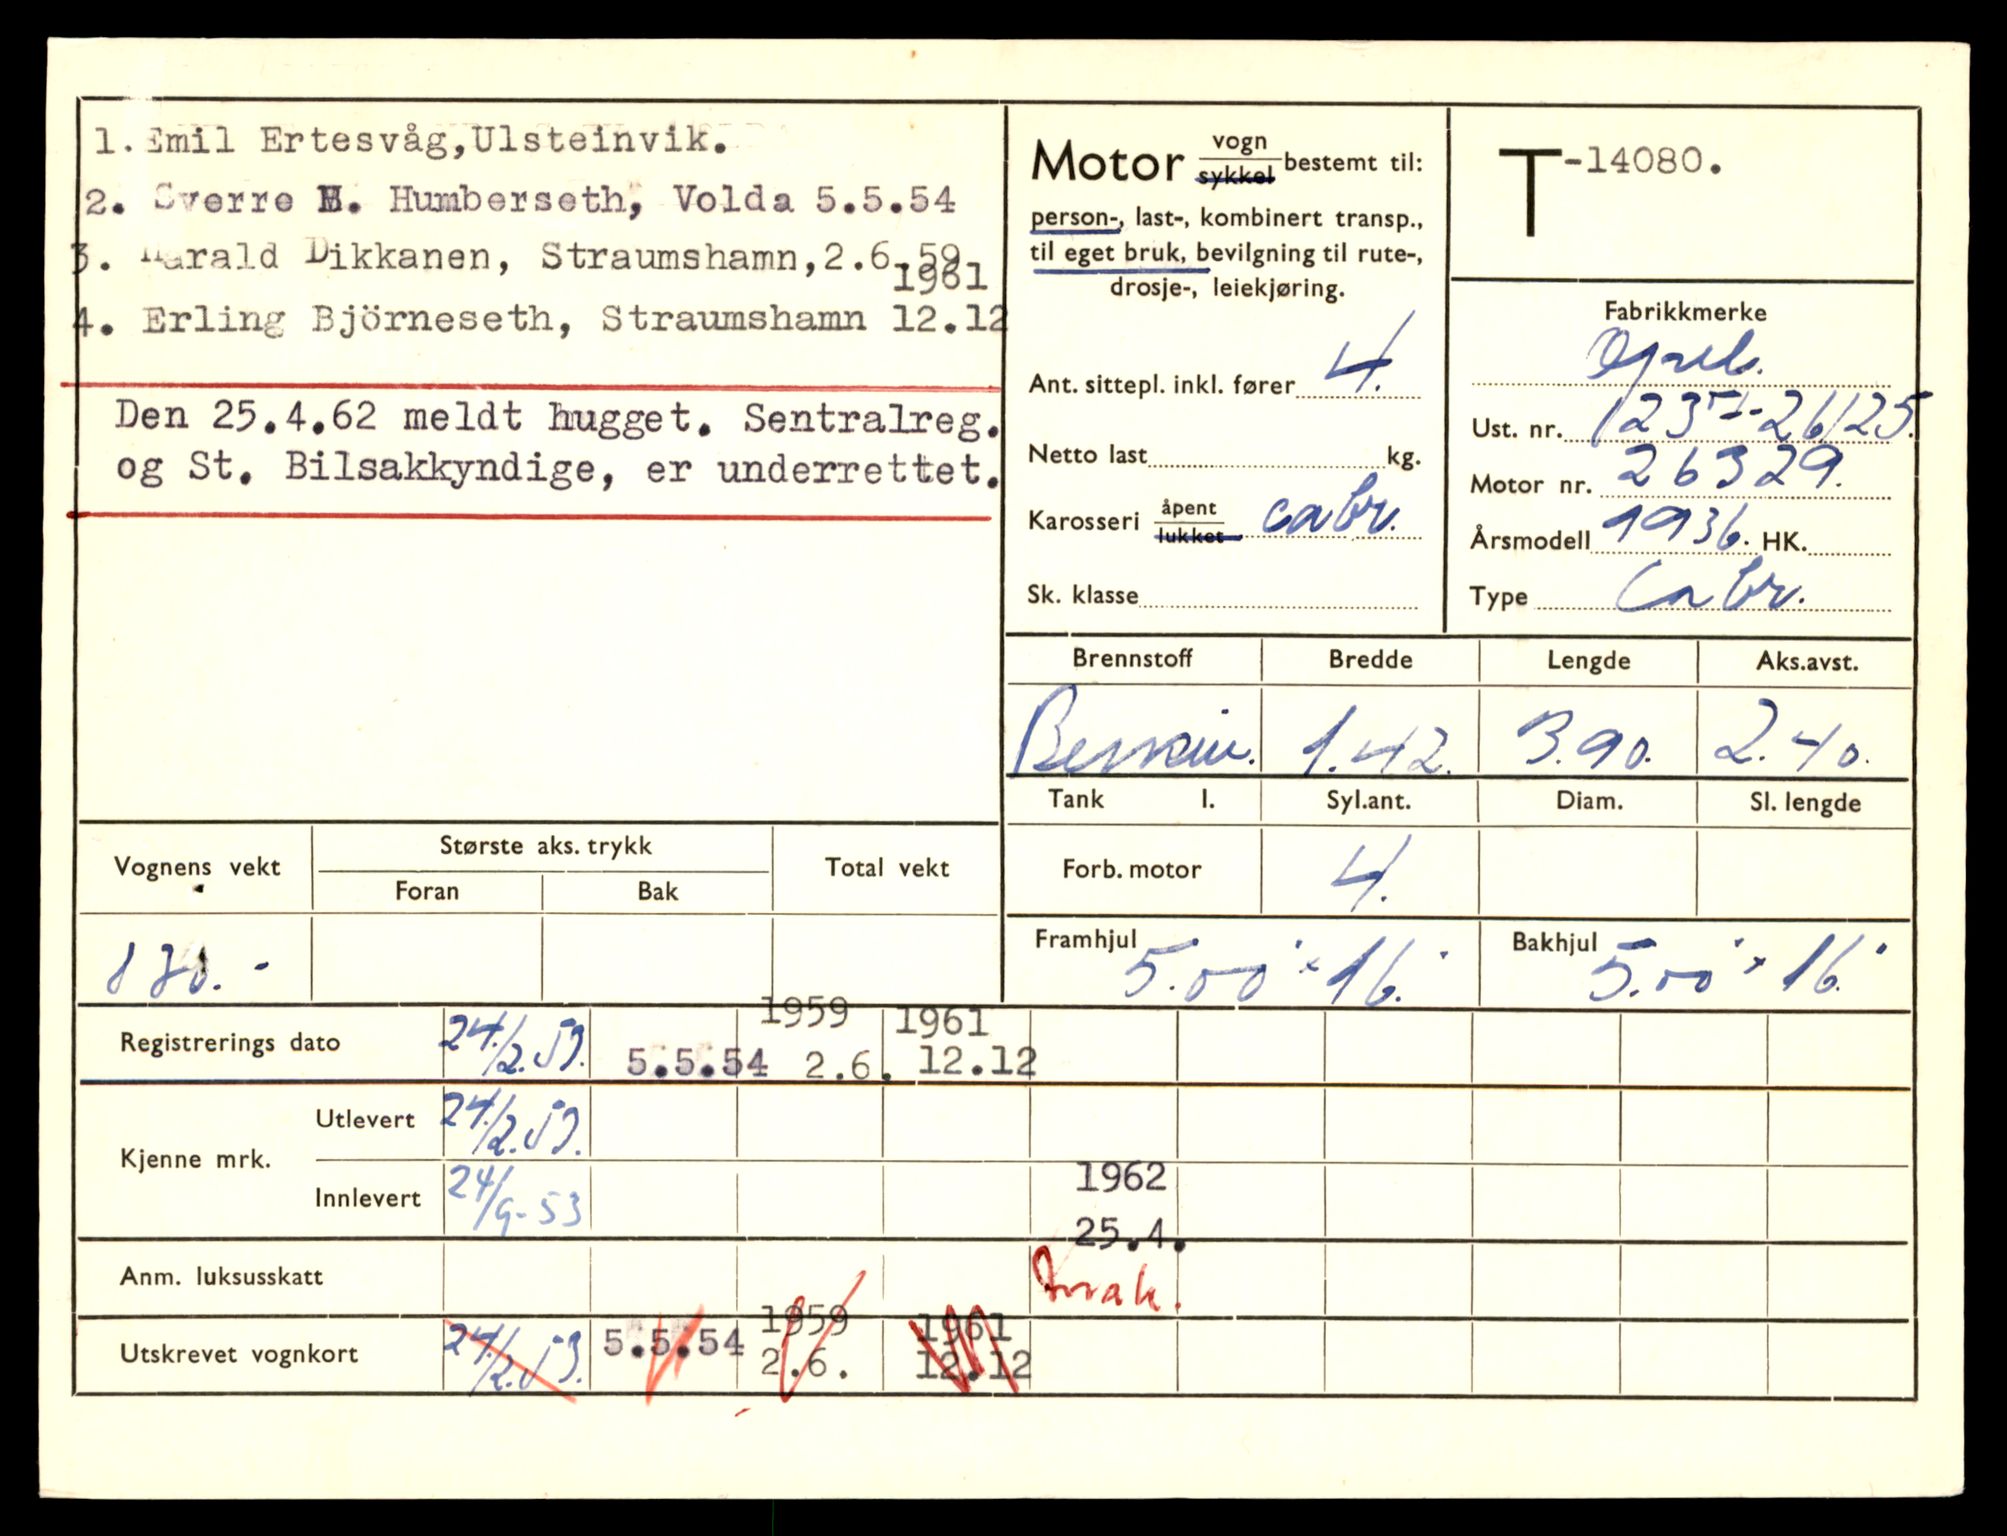 1. Emil Ertesvåg,Ulsteinvik.
2. Sverre H. Humberseth, Volda 5.5.54
3. Harald Dikkanen, Straumshamn,2.6.59
1961
4. Erling Björneseth, Straumshamn 12.12
Den 25.4.62 meldt hugget. Sentralreg.
og St. Bilsakkyndige, er underrettet.
Motor vogn
sykkel bestemt til:
person-, last-, kombinert transp.,
til eget bruk, bevilgning til rute-,
drosje-, leiekjøring.
Ant. sittepl. inkl. fører 4.
Netto last kg.
Karosseri åpent
lukket cabr.
Sk. klasse
T-14080.
Fabrikkmerke
Opel.
Ust. nr.
Motor nr. 26329.
Årsmodell 1936. HK.
Type Cabr.
Brennstoff Bredde Lengde Aks.avst.
Bensin. 1.42. 3.90. 2.40.
Tank l. Syl.ant. Diam. Sl. lengde
Forb. motor 4.
Framhjul 5.00" x 16." Bakhjul 5.00" x 16."
Vognens vekt Største aks. trykk Total vekt
Foran Bak
1959 1961
Registrerings dato 24./2.53. 5.5.54 2.6. 12.12
Kjenne mrk. Utlevert 24./2.53.
Innlevert 24/9-53 1962
25.4.
Anm. luksusskatt
Utskrevet vognkort 24./2.53. 5.5.54 1959 1961
2.6. 12.12